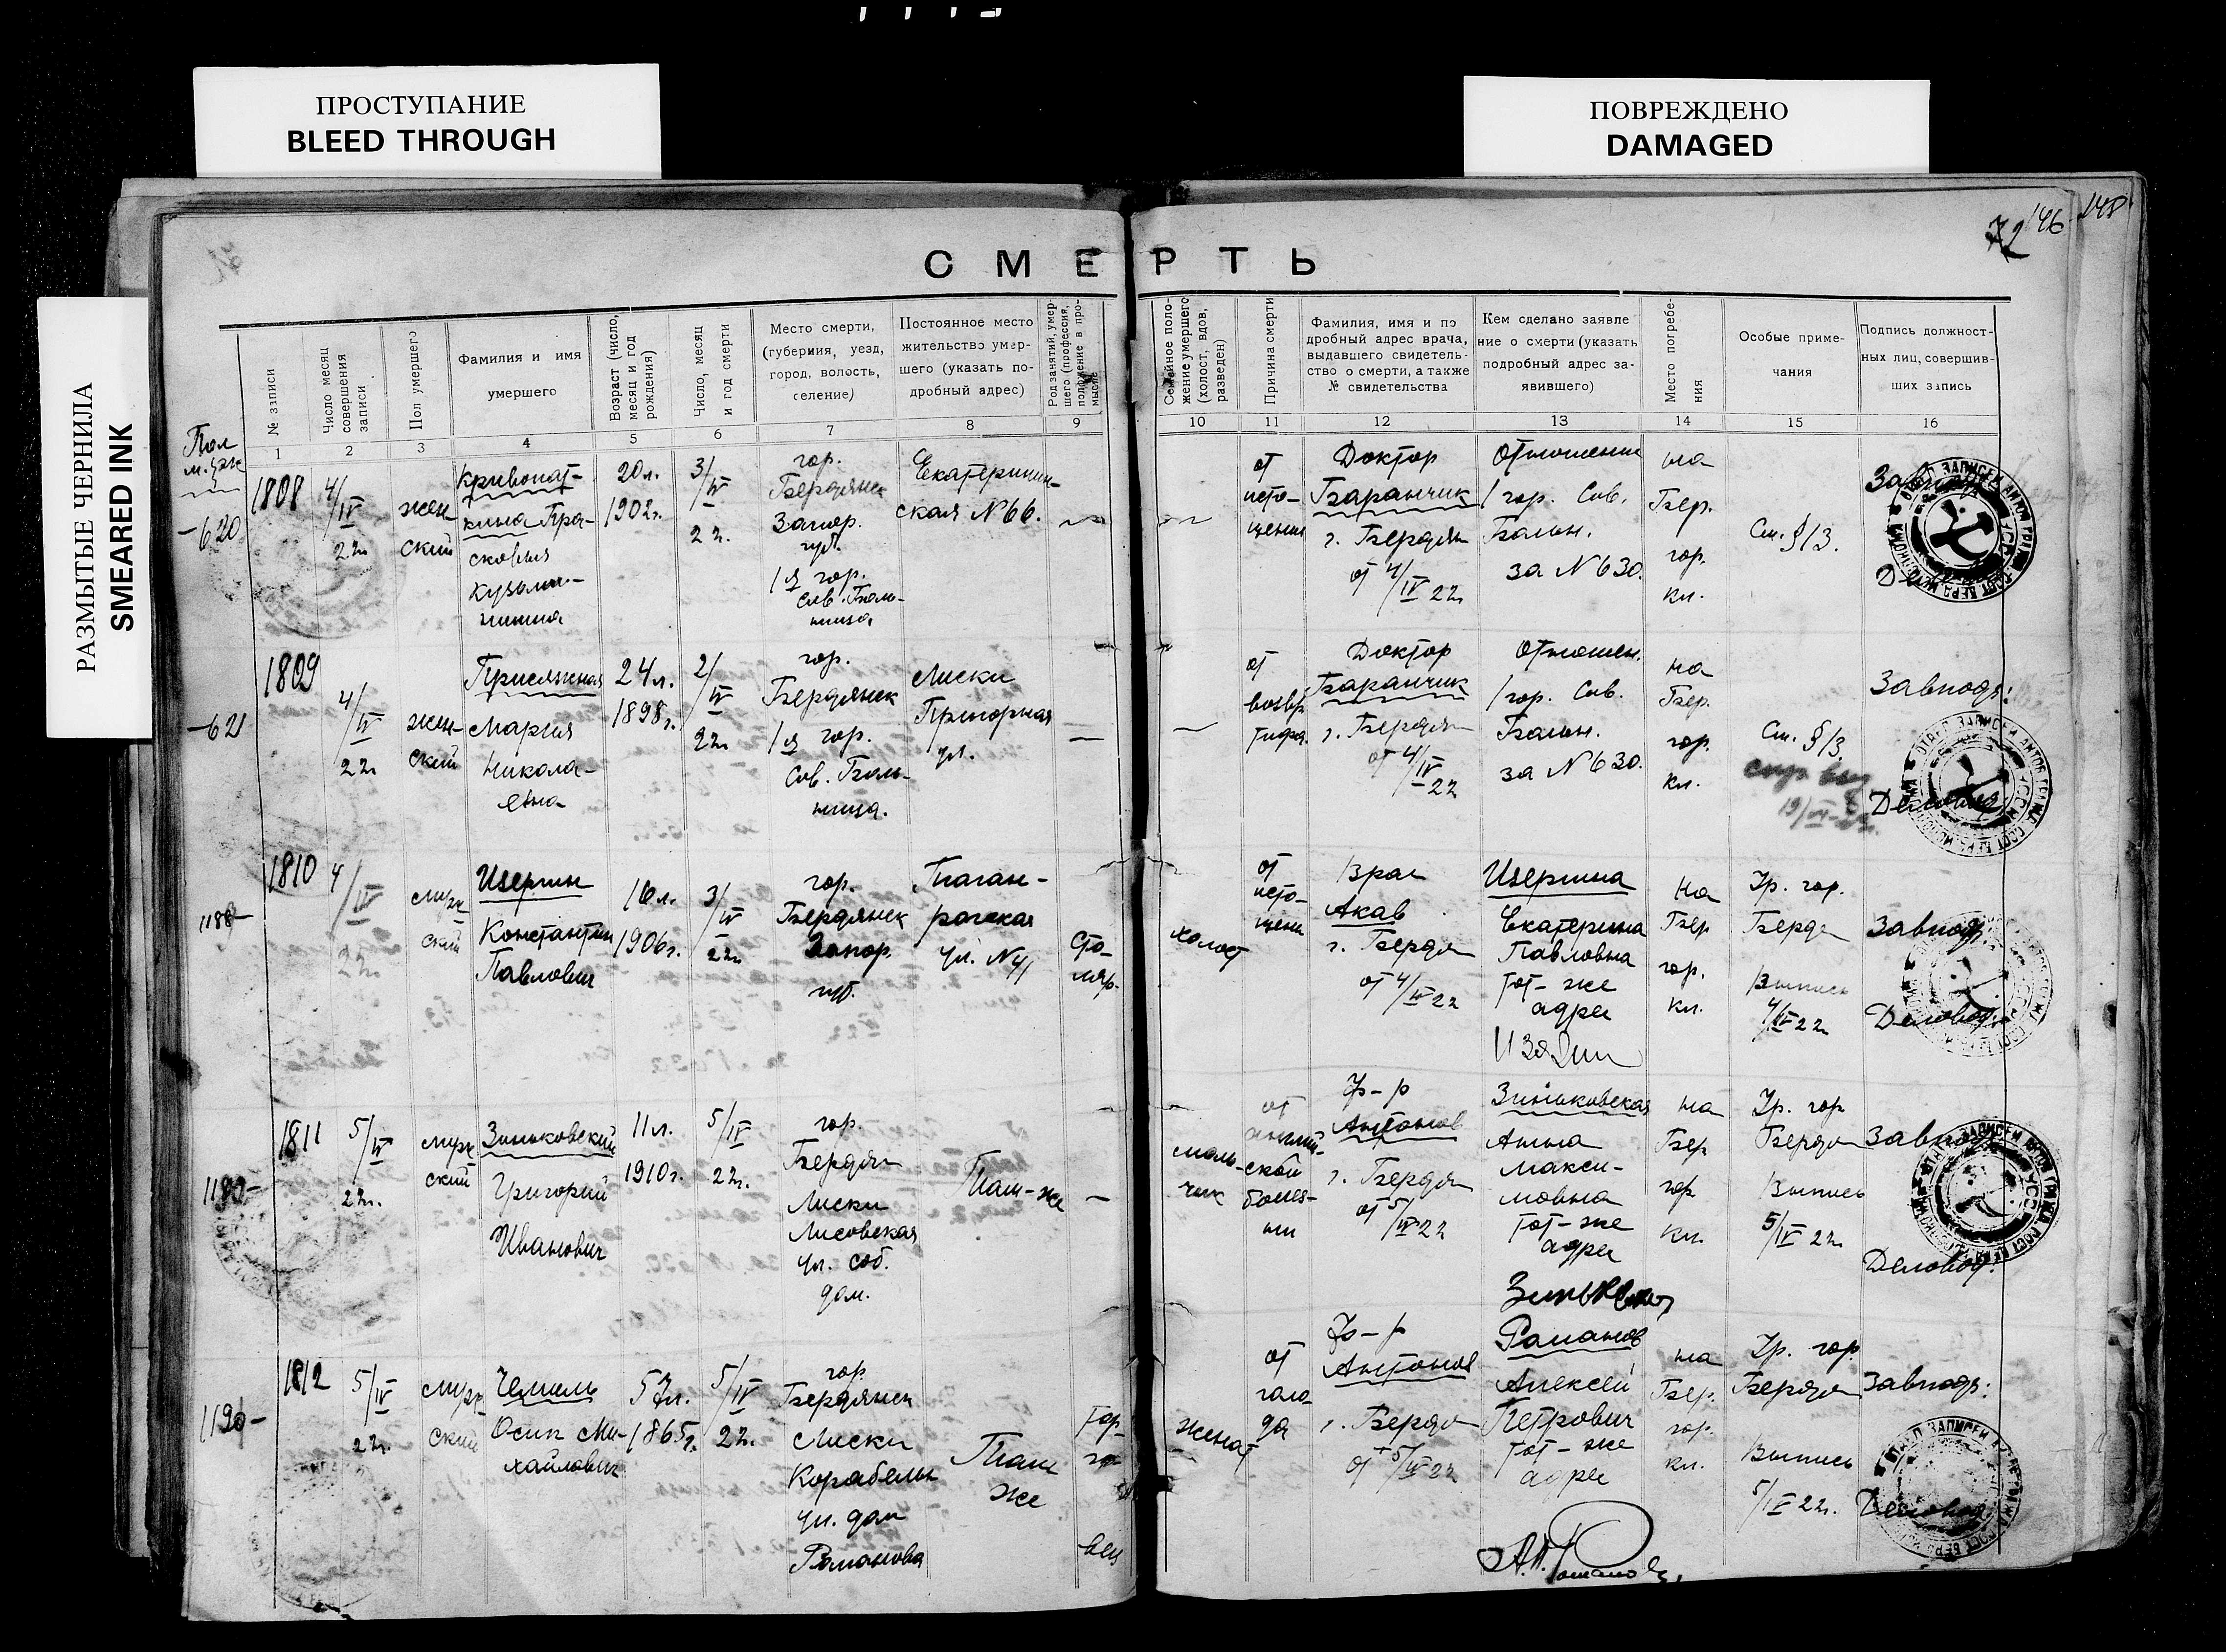 ПРОСТУПАНИЕ
BLEED THROUGH
ПОВРЕЖДЕНО
DAMAGED
РАЗМЫТЫЕ ЧЕРНИЛА
SMEARED INK
72 146
СМЕРТЬ
№ записи
Число месяц совершения записи
Пол умершего
Фамилия и имя
умершего
Возраст (число, месяц и год рождения)
Число, месяц и год смерти
Место смерти,
(губерния, уезд,
город, волость,
селение)
Постоянное место
жительство умер-
шего (указать по-
дробный адрес)
Род занятий, умер-
шего (профессия,
положение в про-
мысле
Семейное поло-
жение умершего
(холост, вдов,
разведен)
Причина смерти
Фамилия, имя и по
дробный адрес врача,
выдавшего свидетель-
ство о смерти, а также
№ свидетельства
Кем сделано заявле
ние о смерти (указать
подробный адрес за-
явившего)
Место погребе-
ния
Особые приме-
чания
Подпись должност-
ных лиц, совершив-
ших запись
1 2 3 4 5 6 7 8 9 10 11 12 13 14 15 16
Пол
620
1808
4/IV
22г.
жен-
ский
Кривопат-
кина Пра-
сковья
Кузьми-
нична
20л.
1902г.
3/IV
22.
гор.
Бердянск
Запор.
губ.
1я гор.
Сов. Боль-
ница
Екатеринин-
ская №66.
от
исто-
щения
Доктор
Баранчик
г. Бердян
от 4/IV 22г
Отношение
1 гор. Сов.
Больн.
за №630.
на
Бер.
гор.
кл.
См. §13.
621
1809
4/IV
22г
жен-
ский
Присяжная
Мария
Никола-
евна
24л.
1898г.
2/IV
22г.
гор.
Бердянск
1я гор.
Сов. Боль-
ница.
Лиски
Пригорная
ул.
от
возвр.
тифа.
Доктор
Баранчик
г. Бердян
от 4/IV 22
Отношен.
1 гор. Сов.
Больн.
за №630.
на
Бер.
гор.
кл.
См. §13
Завподз:
Деловод
1810
4/IV
22г.
муж-
ский
Изергин
Константин
Павлович
16л.
1906г.
3/IV
22г.
гор.
Бердянск
Запор.
губ.
Таган-
рогская
ул. №41
сто-
ляр.
холост
от
исто-
щени
Врач
Акав
г. Бердян
от 4/IV 22
Изергина
Екатерина
Павловна
тот-же
адрес
на
Бер
гор.
кл.
Гр. гор.
Бердя
Выпись
4/IV 22г
Завподз
Деловод:
1811
5/IV
22г.
муж-
ский
Зиньковский
Григорий
Иванович
11л.
1910г.
5/IV
22г.
гор.
Бердян
Лиски
Лисовская
ул. соб.
дом.
Там-же
маль-
чик
от
англий-
ской
болез-
ни
Ф-р
Антонов
г. Бердян
от 5/IV 22
Зиньковская
Анна
Макси-
мовна
тот-же
адрес
на
Бер
гор
кл.
Гр. гор
Бердя
Выпись
5/IV 22г.
Завподз
Деловод:
1190
1812
5/IV
22г.
муж-
ский
Чемиль
Осип Ми-
хайлович
57л.
1865г.
5/IV
22г.
гор
Бердянск
Лиски
Корабельн
ул. дом
Романова
Там
же
тор-
го-
вец
женат
от
голо-
да
Ф-р
Антонов
г. Бердя
от 5/IV 22
Романов
Алексей
Петрович
тот-же
адрес
А.П. Романов
на
Бер.
гор.
кл.
Гр. гор.
Бердян
Выпись
5/IV 22г.
Завподз:
Деловод.